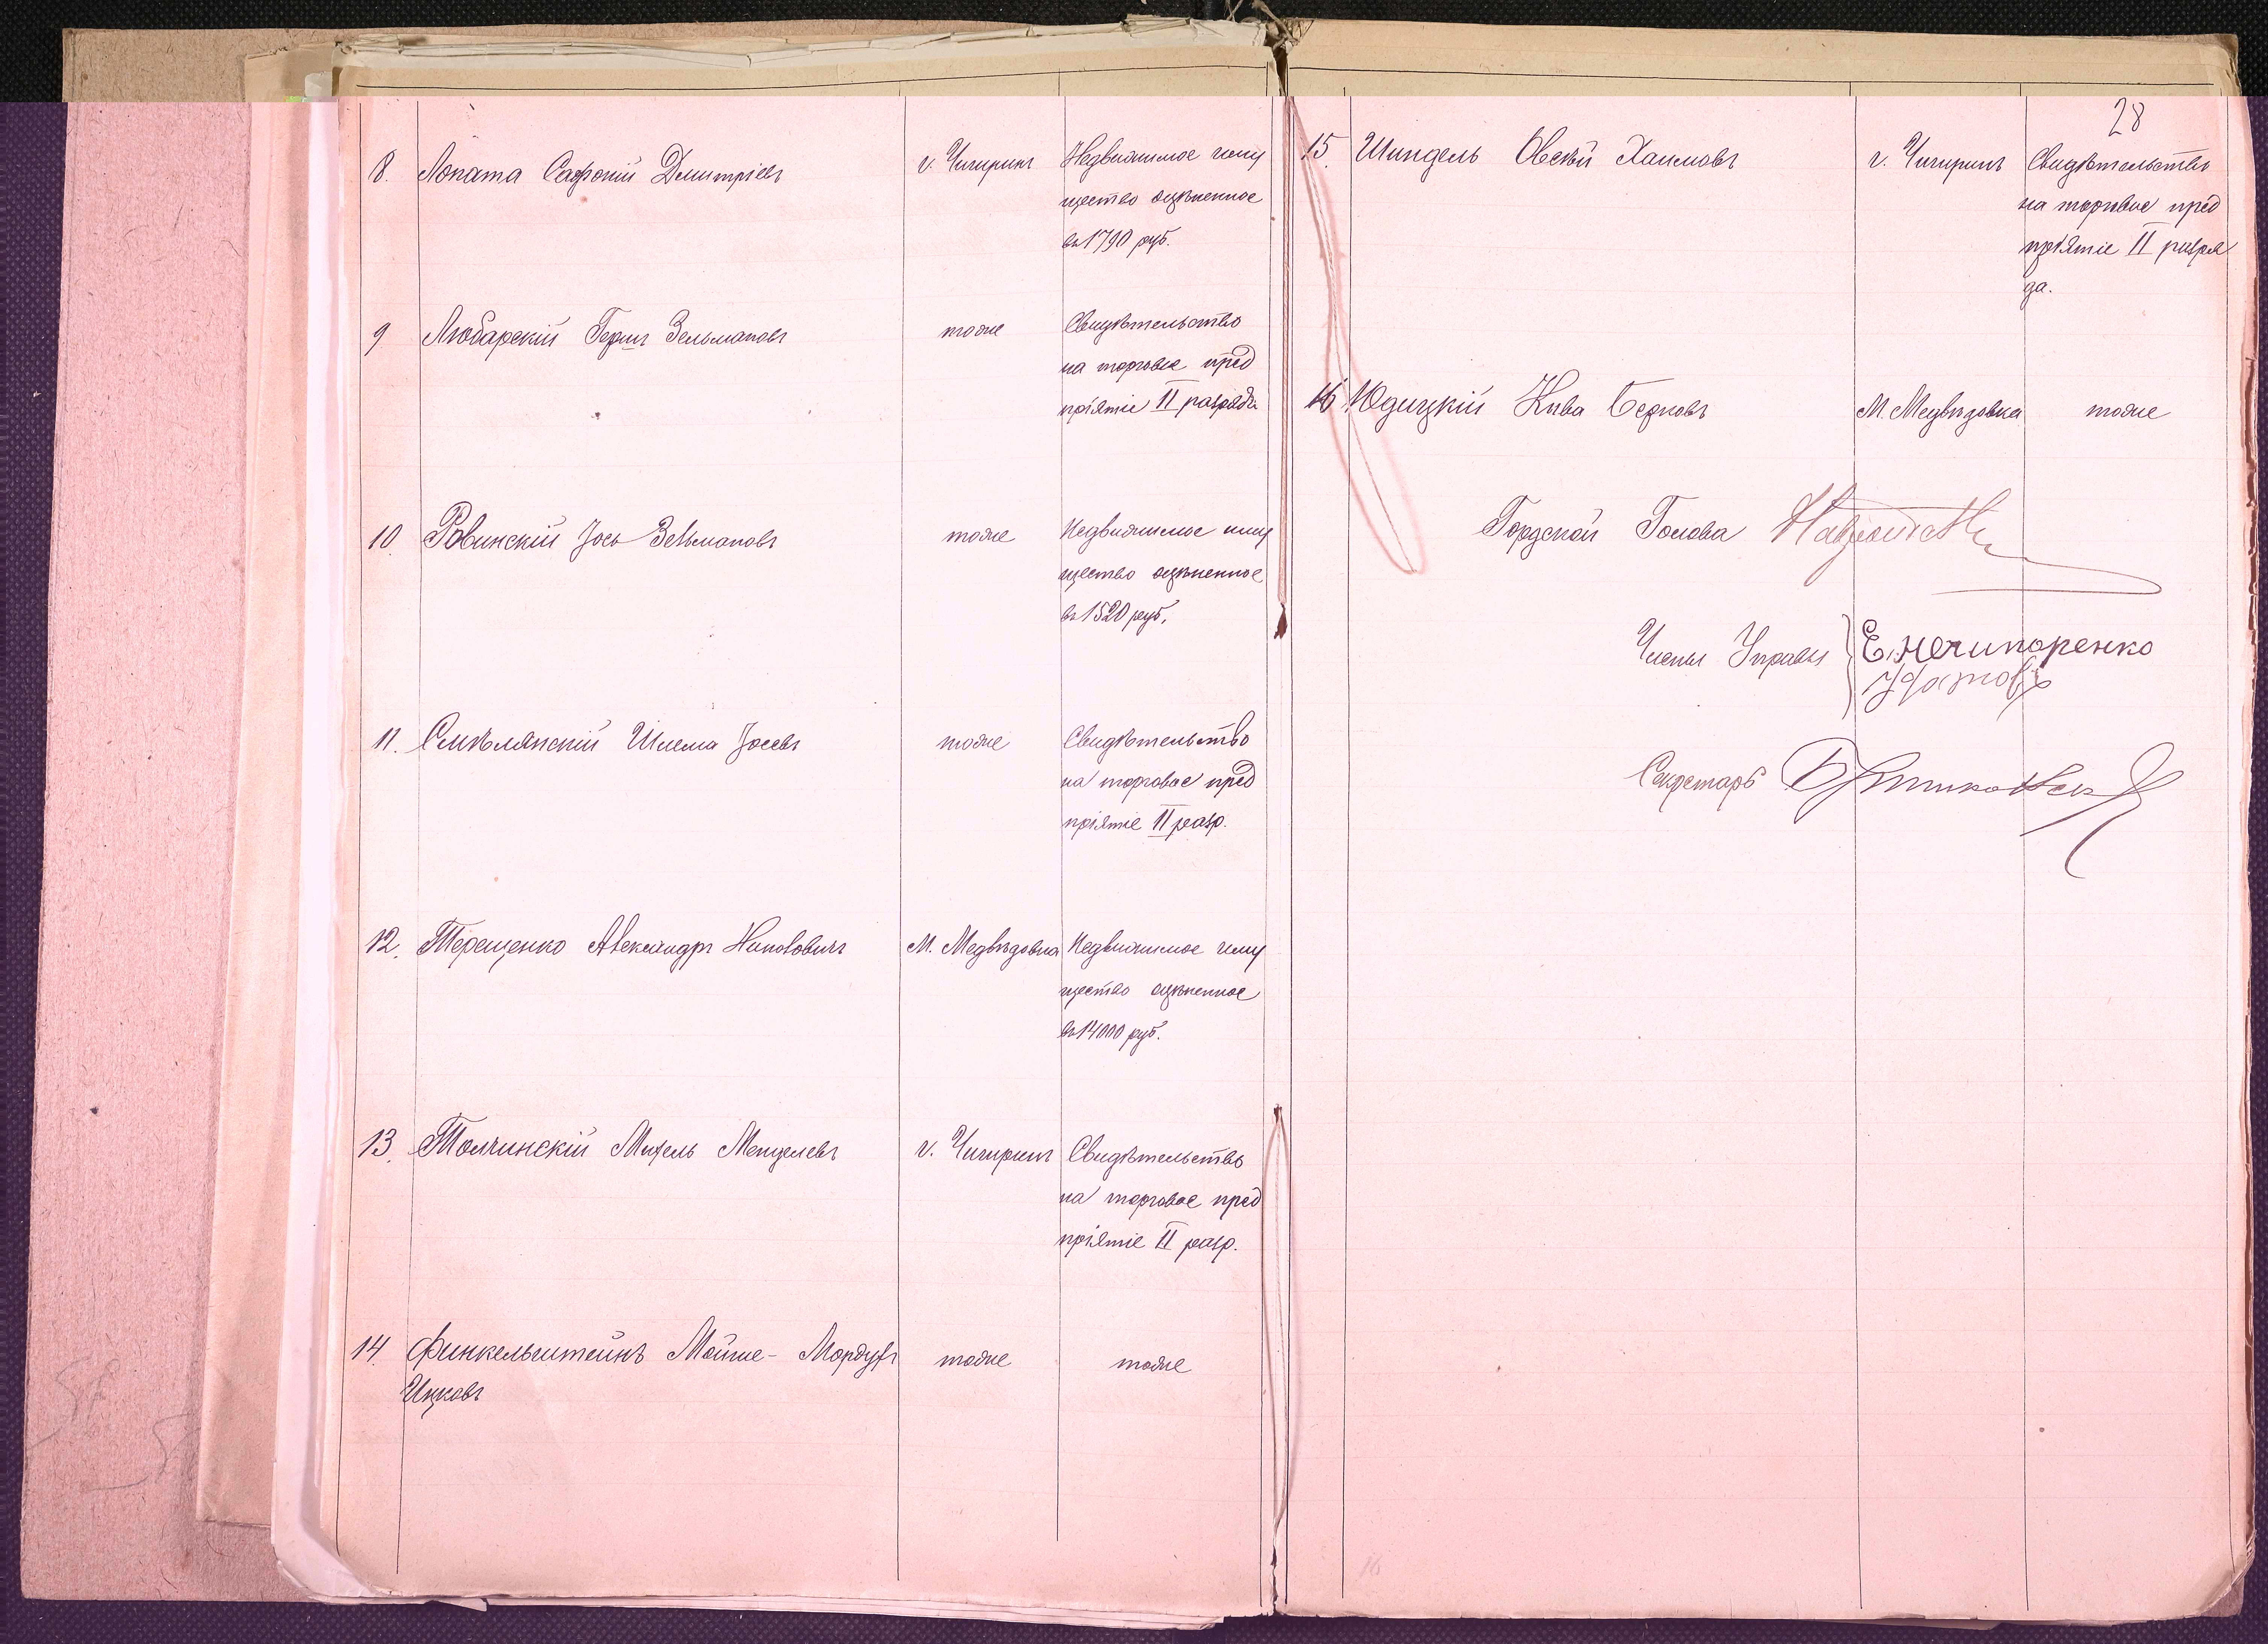 8. Лопата Сафоній Дмитріевъ г. Чигиринъ Недвижимое иму
щество оцѣненное
въ 1790 руб.
9 Любарскій Гершъ Зельмановъ тоже Свидѣтельство
на торговое пред
пріятіе II разряда
10 Ровинскій Іось Зельмановъ тоже Недвижимое иму
щество оцѣненное
въ 1520 руб.
11. Смѣлянскій Шлема Іосевъ тоже Свидѣтельство
на торговое пред
пріятіе II разр.
12. Терещенко Александръ Николовичъ М. Медвѣдовка Недвижимое иму
щество оцѣненное
въ 14000 руб.
13. Толчинскій Михель Менделевъ г. Чигиринъ Свидѣтельство
на торговое пред
пріятіе II разр.
14. Финкельштейнъ Мойше- Мордухъ тоже тоже
Ицковъ
28
15. Шиндель Овсѣй Хаимовъ г. Чигиринъ Свидѣтельство
на торговое пред
пріятіе II разря
да.
16 Юдицкій Кива Берковъ М. Медвѣдовка тоже
Городской Голова
Члены Управы Е. Нечипоренко
Секретарь
16